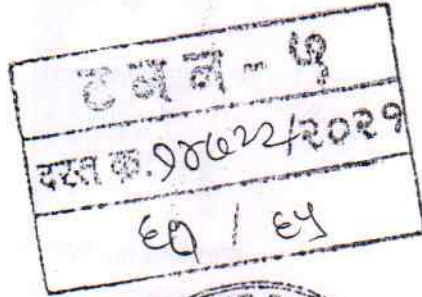 ट न न - ५
दस्त क्र. १४७२२/२०२१
६१ / ६५